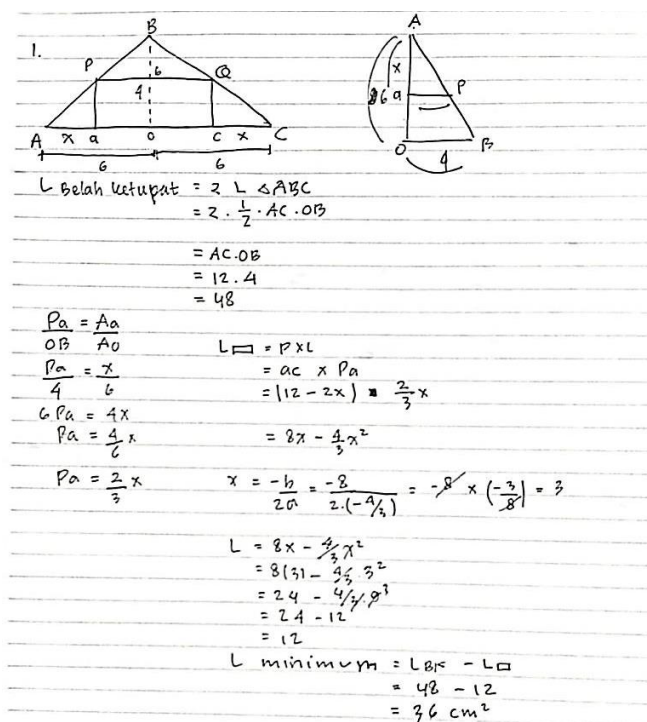 1.
B
P
6
Q
4
A
x
a
o
c
x
C
6
6
A
x
6
a
P
O
4
B
L Belah ketupat = 2 L △ABC
= 2 · 1/2 · AC · OB
= AC·OB
= 12 · 4
= 48
Pa/OB = Aa/AO
Pa/4 = x/6
6 Pa = 4x
Pa = 4/6 x
Pa = 2/3 x
L▭ = P x L
= ac x Pa
= (12 - 2x) · 2/3 x
= 8x - 4/3 x²
x = -b/2a = -8/2·(-4/3) = -8 x (-3/8) = 3
L = 8x - 4/3 x²
= 8(3) - 4/3 · 3²
= 24 - 4/3 · 9 3
= 24 - 12
= 12
L minimum = LBK - L▭
= 48 - 12
= 36 cm²